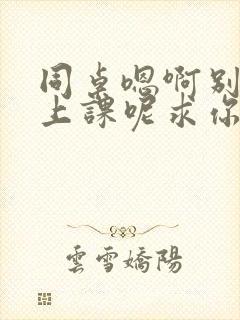 同桌嗯啊别
上課呢求你
雲雪嬌陽